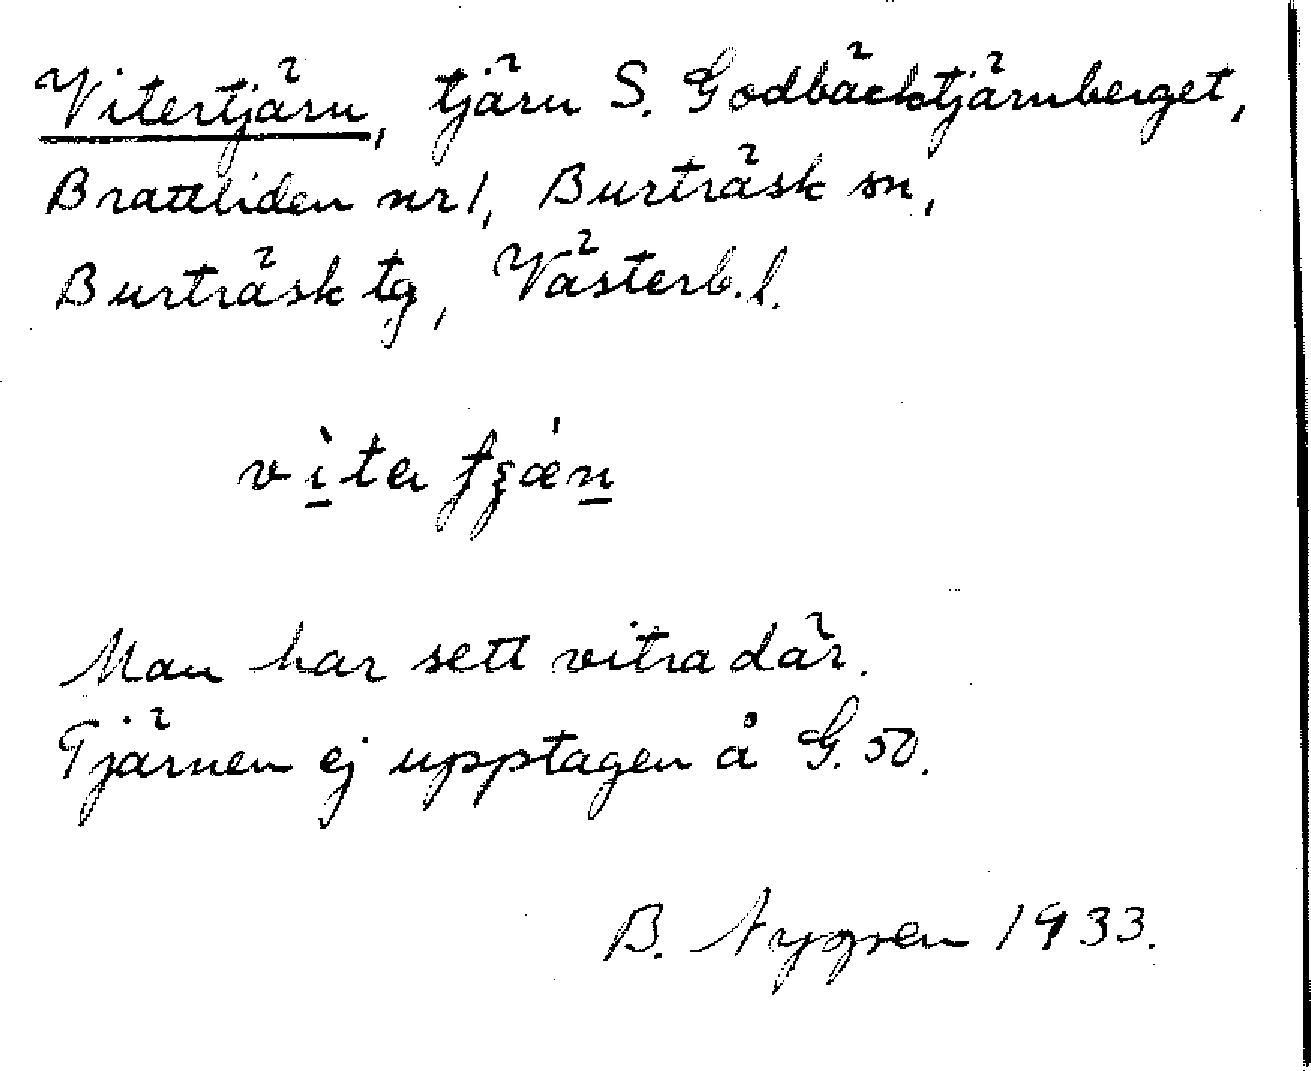 Vitertjärn, tjärn S. Godbäcktjärnberget,
Brattliden nr 1, Burträsk sn,
Burträsk tg, Västerb. l.
Man har sett vitra där.
Tjärnen ej upptagen å G. 50.
B. Nygren 1933.